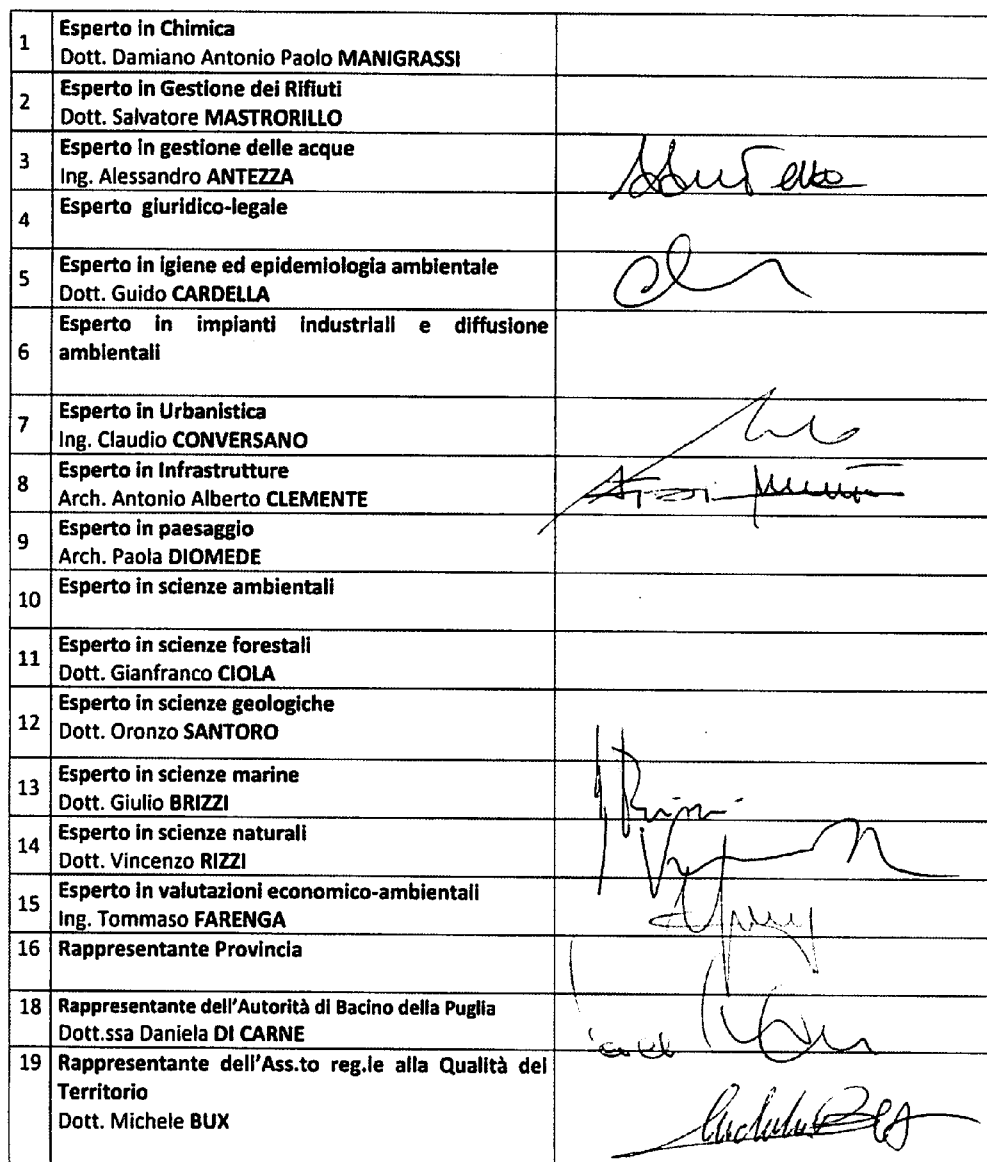 1 Esperto in Chimica
Dott. Damiano Antonio Paolo MANIGRASSI
2 Esperto in Gestione dei Rifiuti
Dott. Salvatore MASTRORILLO
3 Esperto in gestione delle acque
Ing. Alessandro ANTEZZA
4 Esperto giuridico-legale
5 Esperto in igiene ed epidemiologia ambientale
Dott. Guido CARDELLA
6 Esperto in impianti industriali e diffusione
ambientali
7 Esperto in Urbanistica
Ing. Claudio CONVERSANO
8 Esperto in Infrastrutture
Arch. Antonio Alberto CLEMENTE
9 Esperto in paesaggio
Arch. Paola DIOMEDE
10 Esperto in scienze ambientali
11 Esperto in scienze forestali
Dott. Gianfranco CIOLA
12 Esperto in scienze geologiche
Dott. Oronzo SANTORO
13 Esperto in scienze marine
Dott. Giulio BRIZZI
14 Esperto in scienze naturali
Dott. Vincenzo RIZZI
15 Esperto in valutazioni economico-ambientali
Ing. Tommaso FARENGA
16 Rappresentante Provincia
18 Rappresentante dell'Autorità di Bacino della Puglia
Dott.ssa Daniela DI CARNE
19 Rappresentante dell'Ass.to reg.le alla Qualità del
Territorio
Dott. Michele BUX